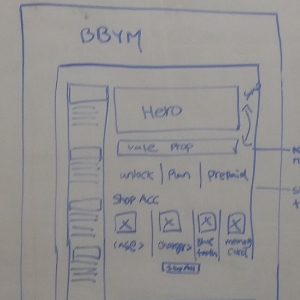 BBYM
Hero
value prop
unlock | plan | prepaid
Shop Acc
cases> chargers> memory
cards
Shop All